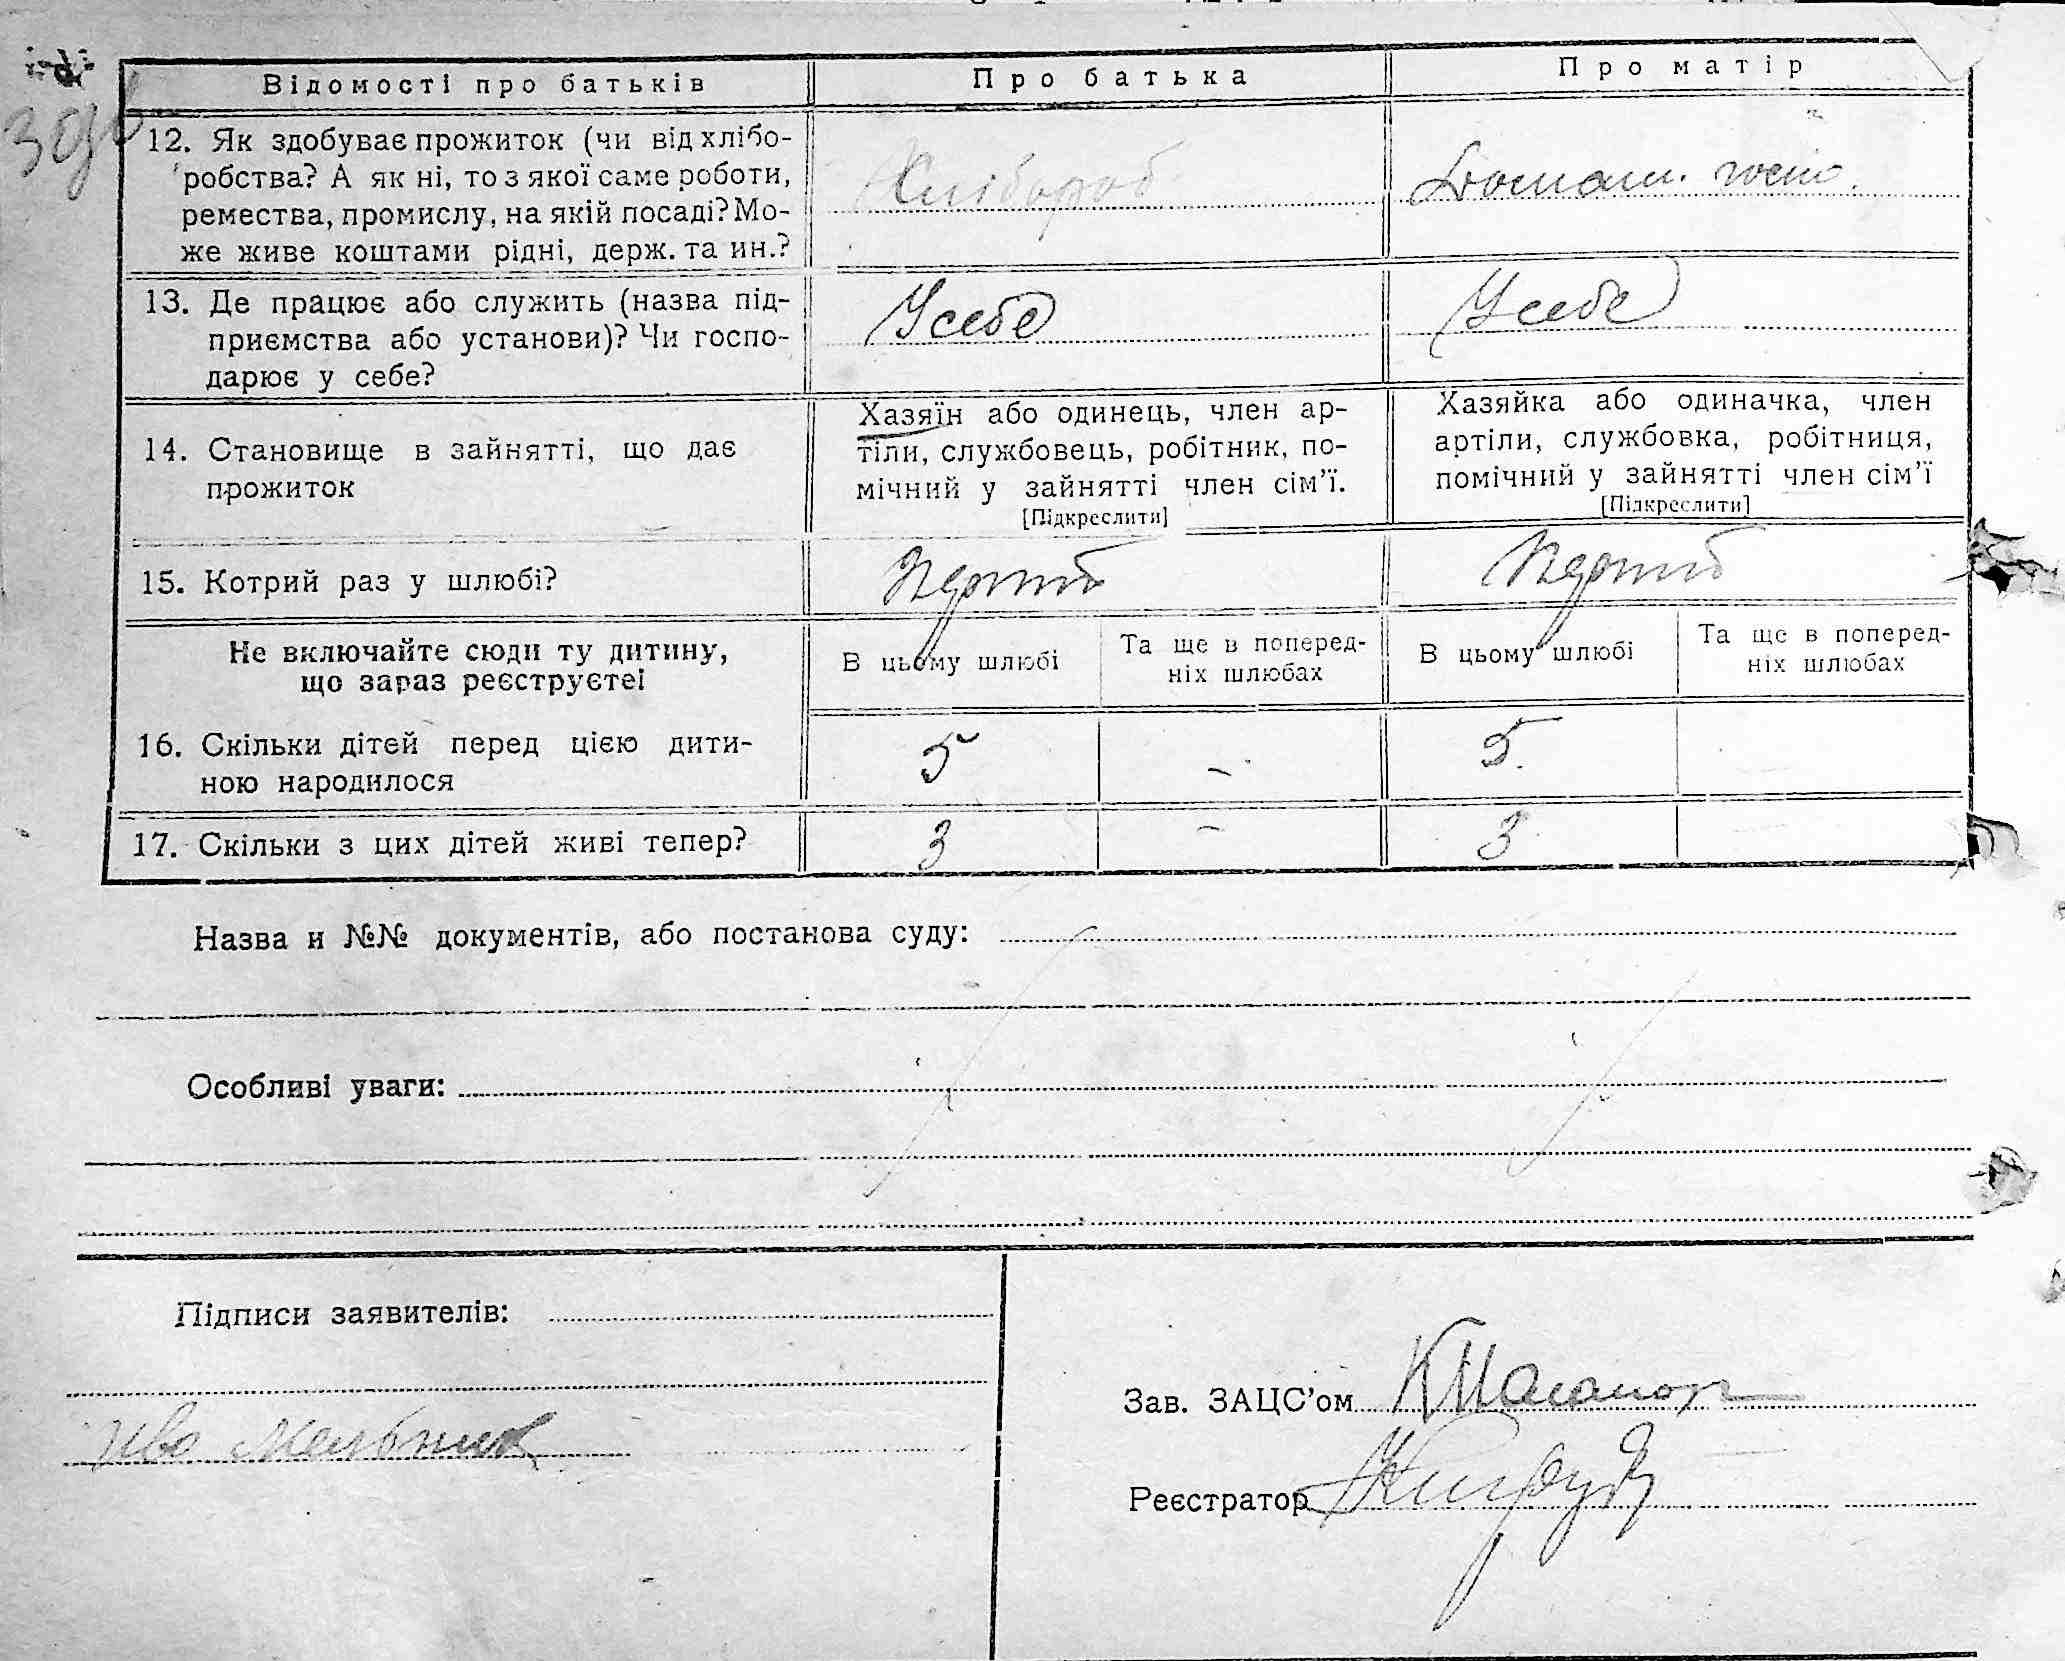 Відомості про батьків
Про батька
Про матір
12. Як здобуває прожиток (чи від хлібо-
робства? А як ні, то з якої саме роботи,
ремества, промислу, на якій посаді? Мо-
же живе коштами рідні, держ. та ин.?
Хлібороб
Домаш.
13. Де працює або служить (назва під-
приємства або установи)? Чи госпо-
дарює у себе?
У себе
У себе
14. Становище в зайнятті, що дає
прожиток
Хазяїн або одинець, член ар-
тіли, службовець, робітник, по-
мічний у зайнятті член сім'ї.
[Підкреслити]
Хазяйка або одиначка, член
артіли, службовка, робітниця,
помічний у зайнятті член сім'ї
[Підкреслити]
15. Котрий раз у шлюбі?
Не включайте сюди ту дитину,
що зараз реєструєте!
В цьому шлюбі
Та ще в поперед-
ніх шлюбах
В цьому шлюбі
Та ще в поперед-
ніх шлюбах
16. Скільки дітей перед цією дити-
ною народилося
5
-
5.
17. Скільки з цих дітей живі тепер?
3
-
3
Назва и №№ документів, або постанова суду:
Особливі уваги:
Підписи заявителів:
Мельник
Зав. ЗАЦС'ом
Реєстратор